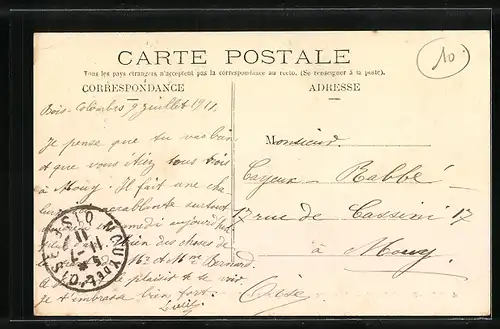 CARTE POSTALE
Tous les pays étrangers n'acceptent pas la correspondance au recto. (Se renseigner à la poste).
CORRESPONDANCE
Bois-Colombes 9 juillet 1911.
Je pense que tu vas bien
et que vous étiez tous trois
à Mouy. Il fait une cha
accablante surtout
midi aujourd'hui
bien des choses de
à M. et Mme Bernard.
plaisir de te voir.
Je t'embrasse bien fort.
ADRESSE
Monsieur.
Cayeux-Rabbé
17 rue de Cassini 17
à Mouy.
Oise
10
MOUY OISE